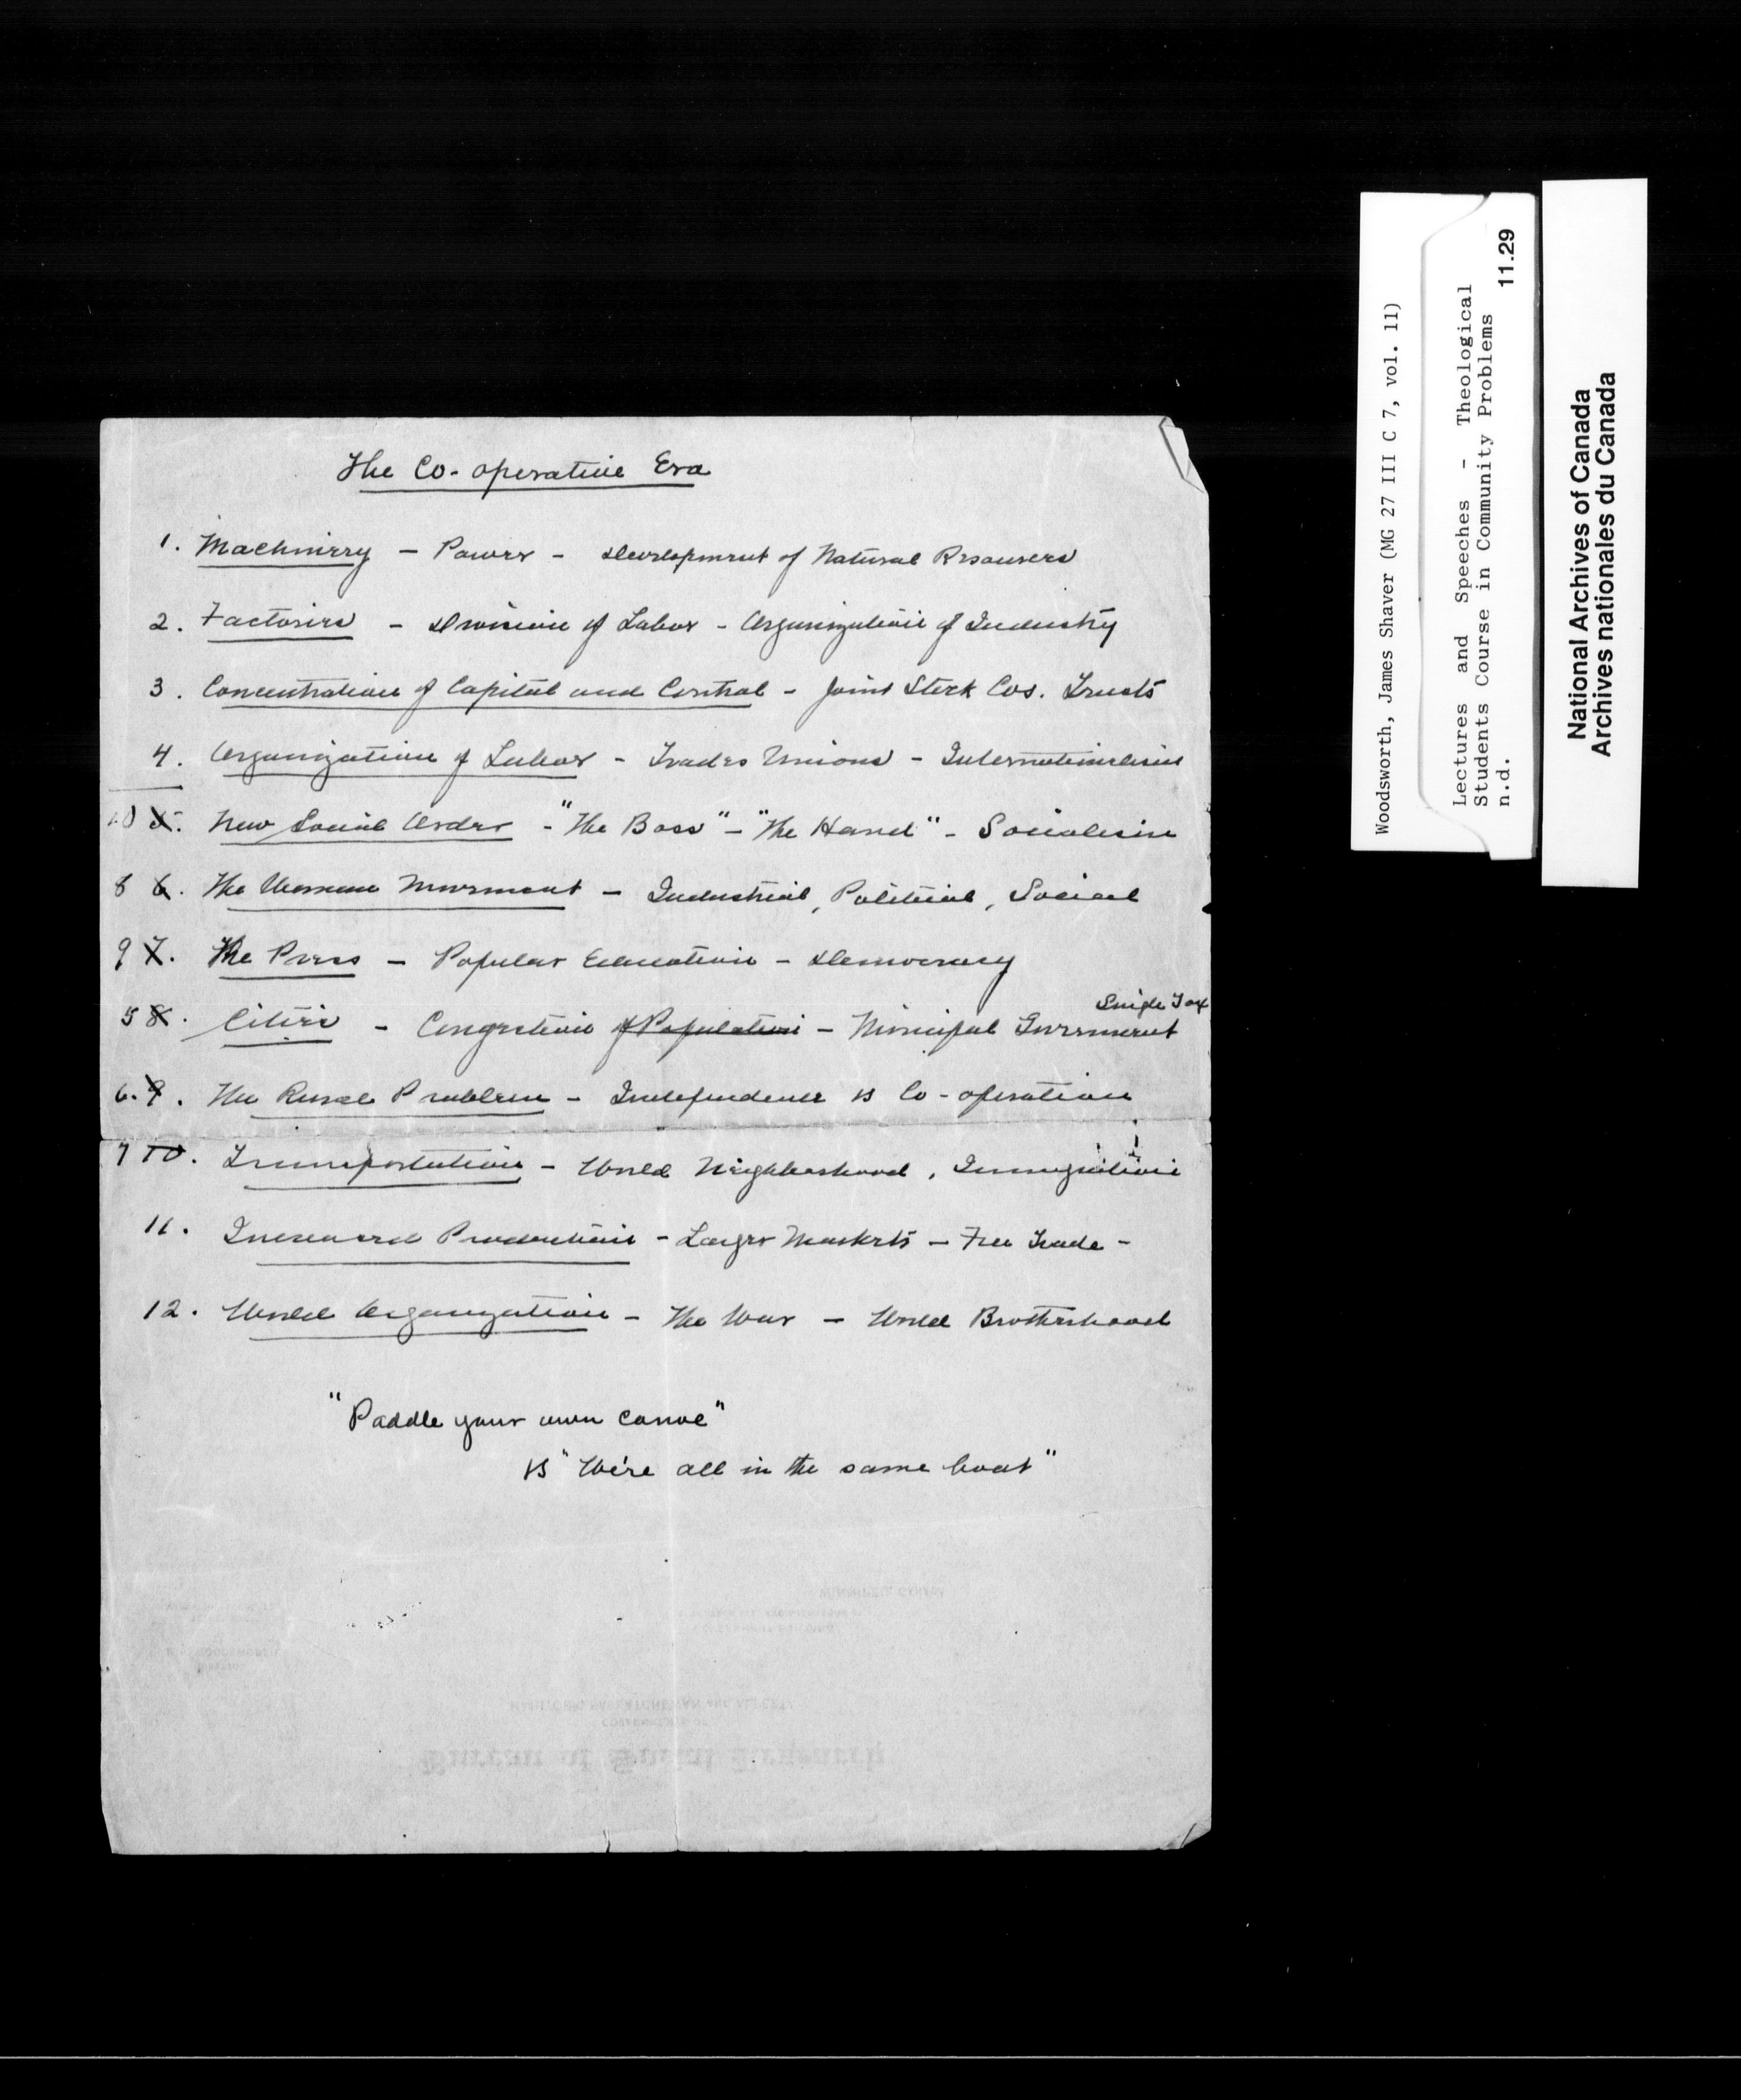 The Co-operative Era
1. Machinery – Power – Development of Natural Resources
2. Factories – Division of Labor – Organization of Industry
3. Concentration of Capital and Control – Joint Stock Cos. Trusts
4. Organization of Labor – Trades Unions – Internationalism
10 5. New Social Order – "The Boss" – "The Hand" – Socialism
8 6. The Woman Movement – Industrial, Political, Social
9 7. The Press – Popular Education – Democracy
Single Tax
5 8. Cities – Congestion of Population – Municipal Government
6. 9. The Rural Problem – Independence vs Co-operation
7 10. Transportation – World Neighborhood, Immigration
11. Increased Production – Larger Markets – Free Trade –
12. World Organization – The War – World Brotherhood
"Paddle your own canoe"
vs "We're all in the same boat"
Bureau of Social Research
MANITOBA, SASKATCHEWAN AND ALBERTA
WINNIPEG, CANADA
Woodsworth, James Shaver (MG 27 III C 7, vol. 11)
Lectures and Speeches - Theological
Students Course in Community Problems
n.d. 11.29
National Archives of Canada
Archives nationales du Canada